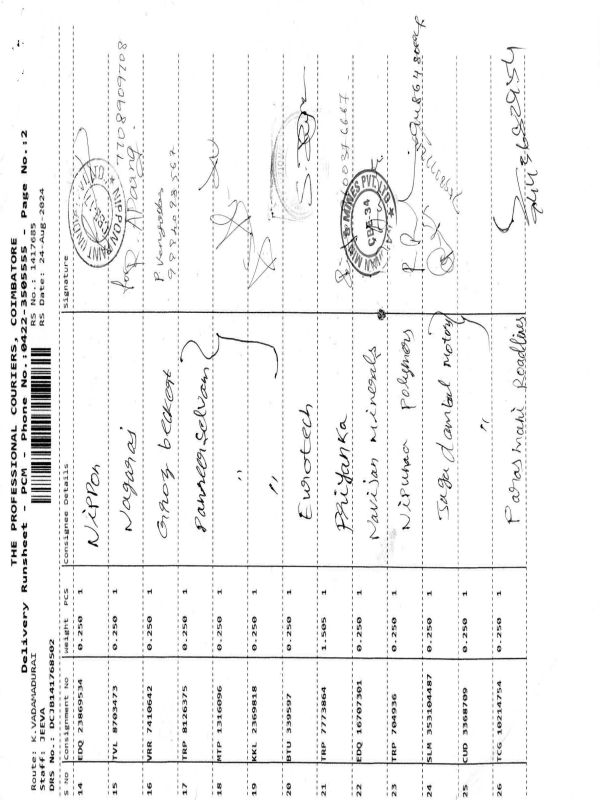 THE PROFESSIONAL COURIERS, COIMBATORE
Delivery Runsheet - PCM - Phone No.:0422-3505555 - Page No.:2
Route: K.VADAMADURAI
RS No.: 1417685
Staff: JEEVA
RS Date: 24-Aug-2024
DRS No.: DCJB141768502
S No Consignment No Weight PCS Consignee Details Signature
14 EDQ 23869534 0.250 1 Nippon
15 TVL 8703473 0.250 1 Nagaraj 7708909708
16 VRR 7410642 0.250 1 Groz beckert
17 TRP 8126375 0.250 1 Panneerselvam
18 MTP 1316096 0.250 1 "
19 KKL 2369818 0.250 1 "
20 BTU 339597 0.250 1 Eurotech
21 TRP 7773864 1.505 1 Priyanka
22 EDQ 16707301 0.250 1 Navijan Minerals MINES PVT LTD CBE-34
23 TRP 704936 0.250 1 Nipunaa Polymers
24 SLM 353104487 0.250 1
25 CUD 3368709 0.250 1 "
26 TCG 10214754 0.250 1 Parasmani Roadlines